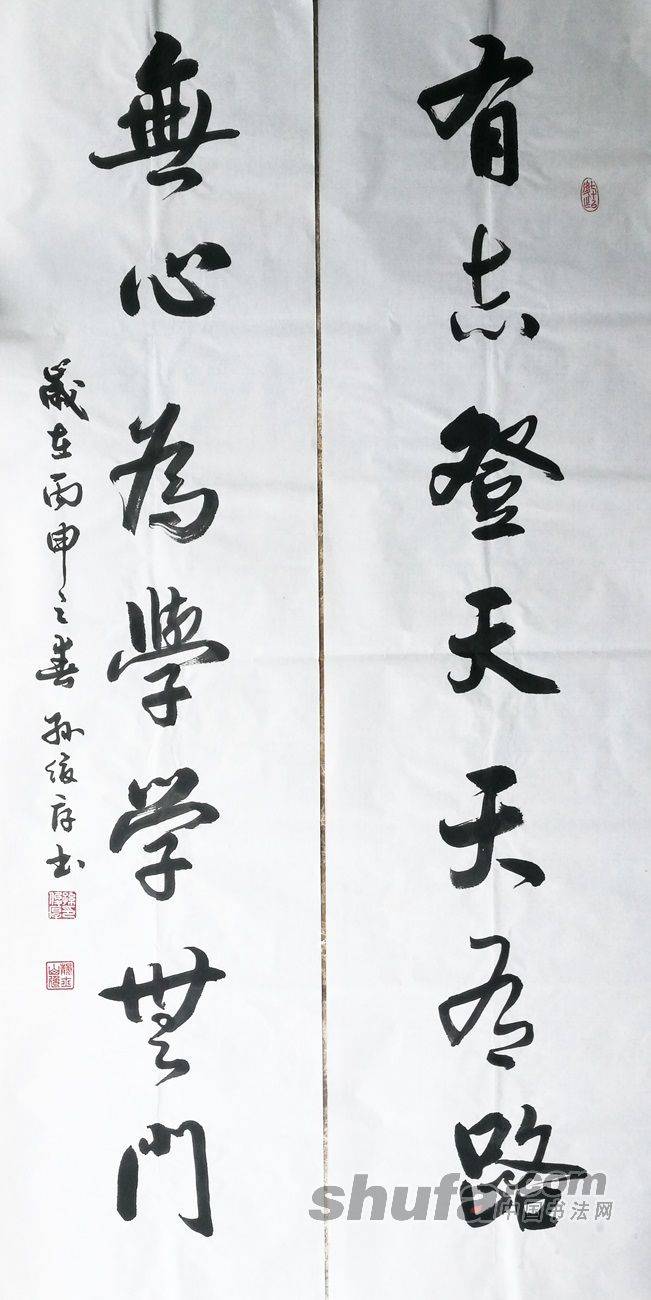 有志登天天有路
無心為學学無門
歲在丙申之春孫俊序书
shufa.com
中国书法网